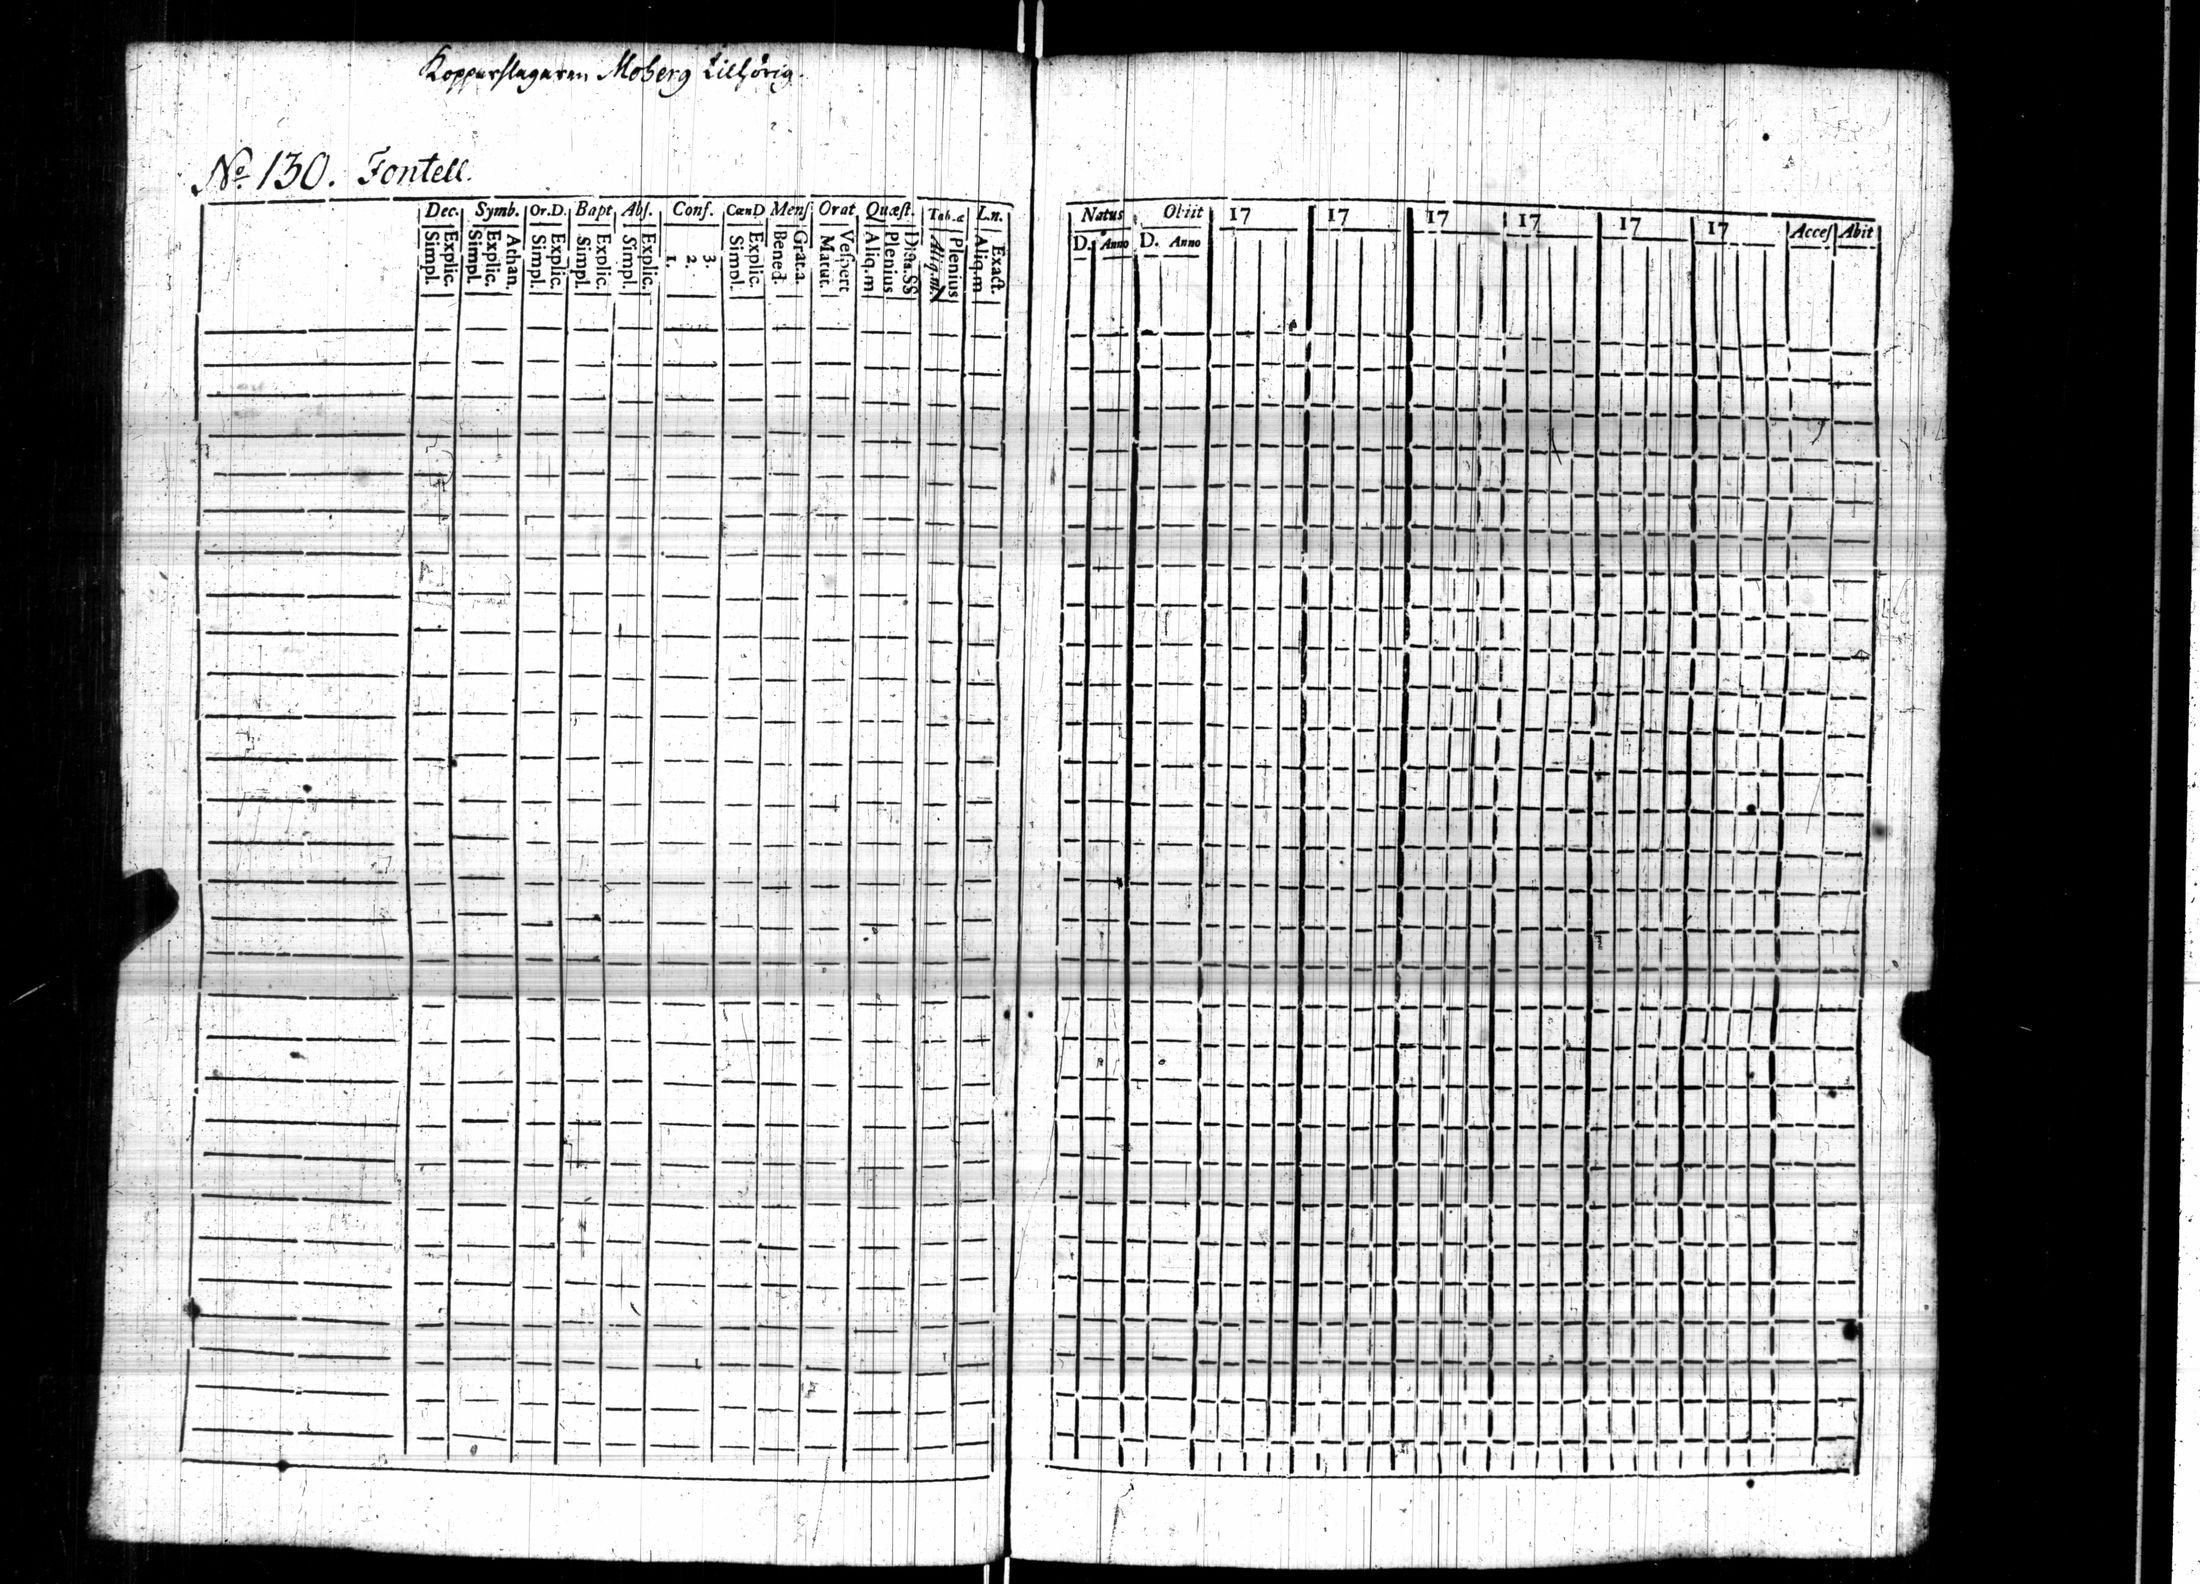 Kopparslagaren Moberg tilhörig.
No. 130. Fontell.
Dec. Symb. Or.D. Bapt Abs. Conf. CœnD Mens Orat Quæst. Tab.æ L.n.
Simpl. Explic. Simpl. Explic. Athan. Simpl. Explic. Simpl. Explic. Simpl. Explic. 1. 2. 3. Simpl. Explic. Bened. Grat.a. Matut. Vespert Aliq.m Plenius Dicta.SS Aliq.m Plenius Aliq.m Exact.
Natus Obiit 17 17 17 17 17 17 Acces Abit
D. Anno D. Anno